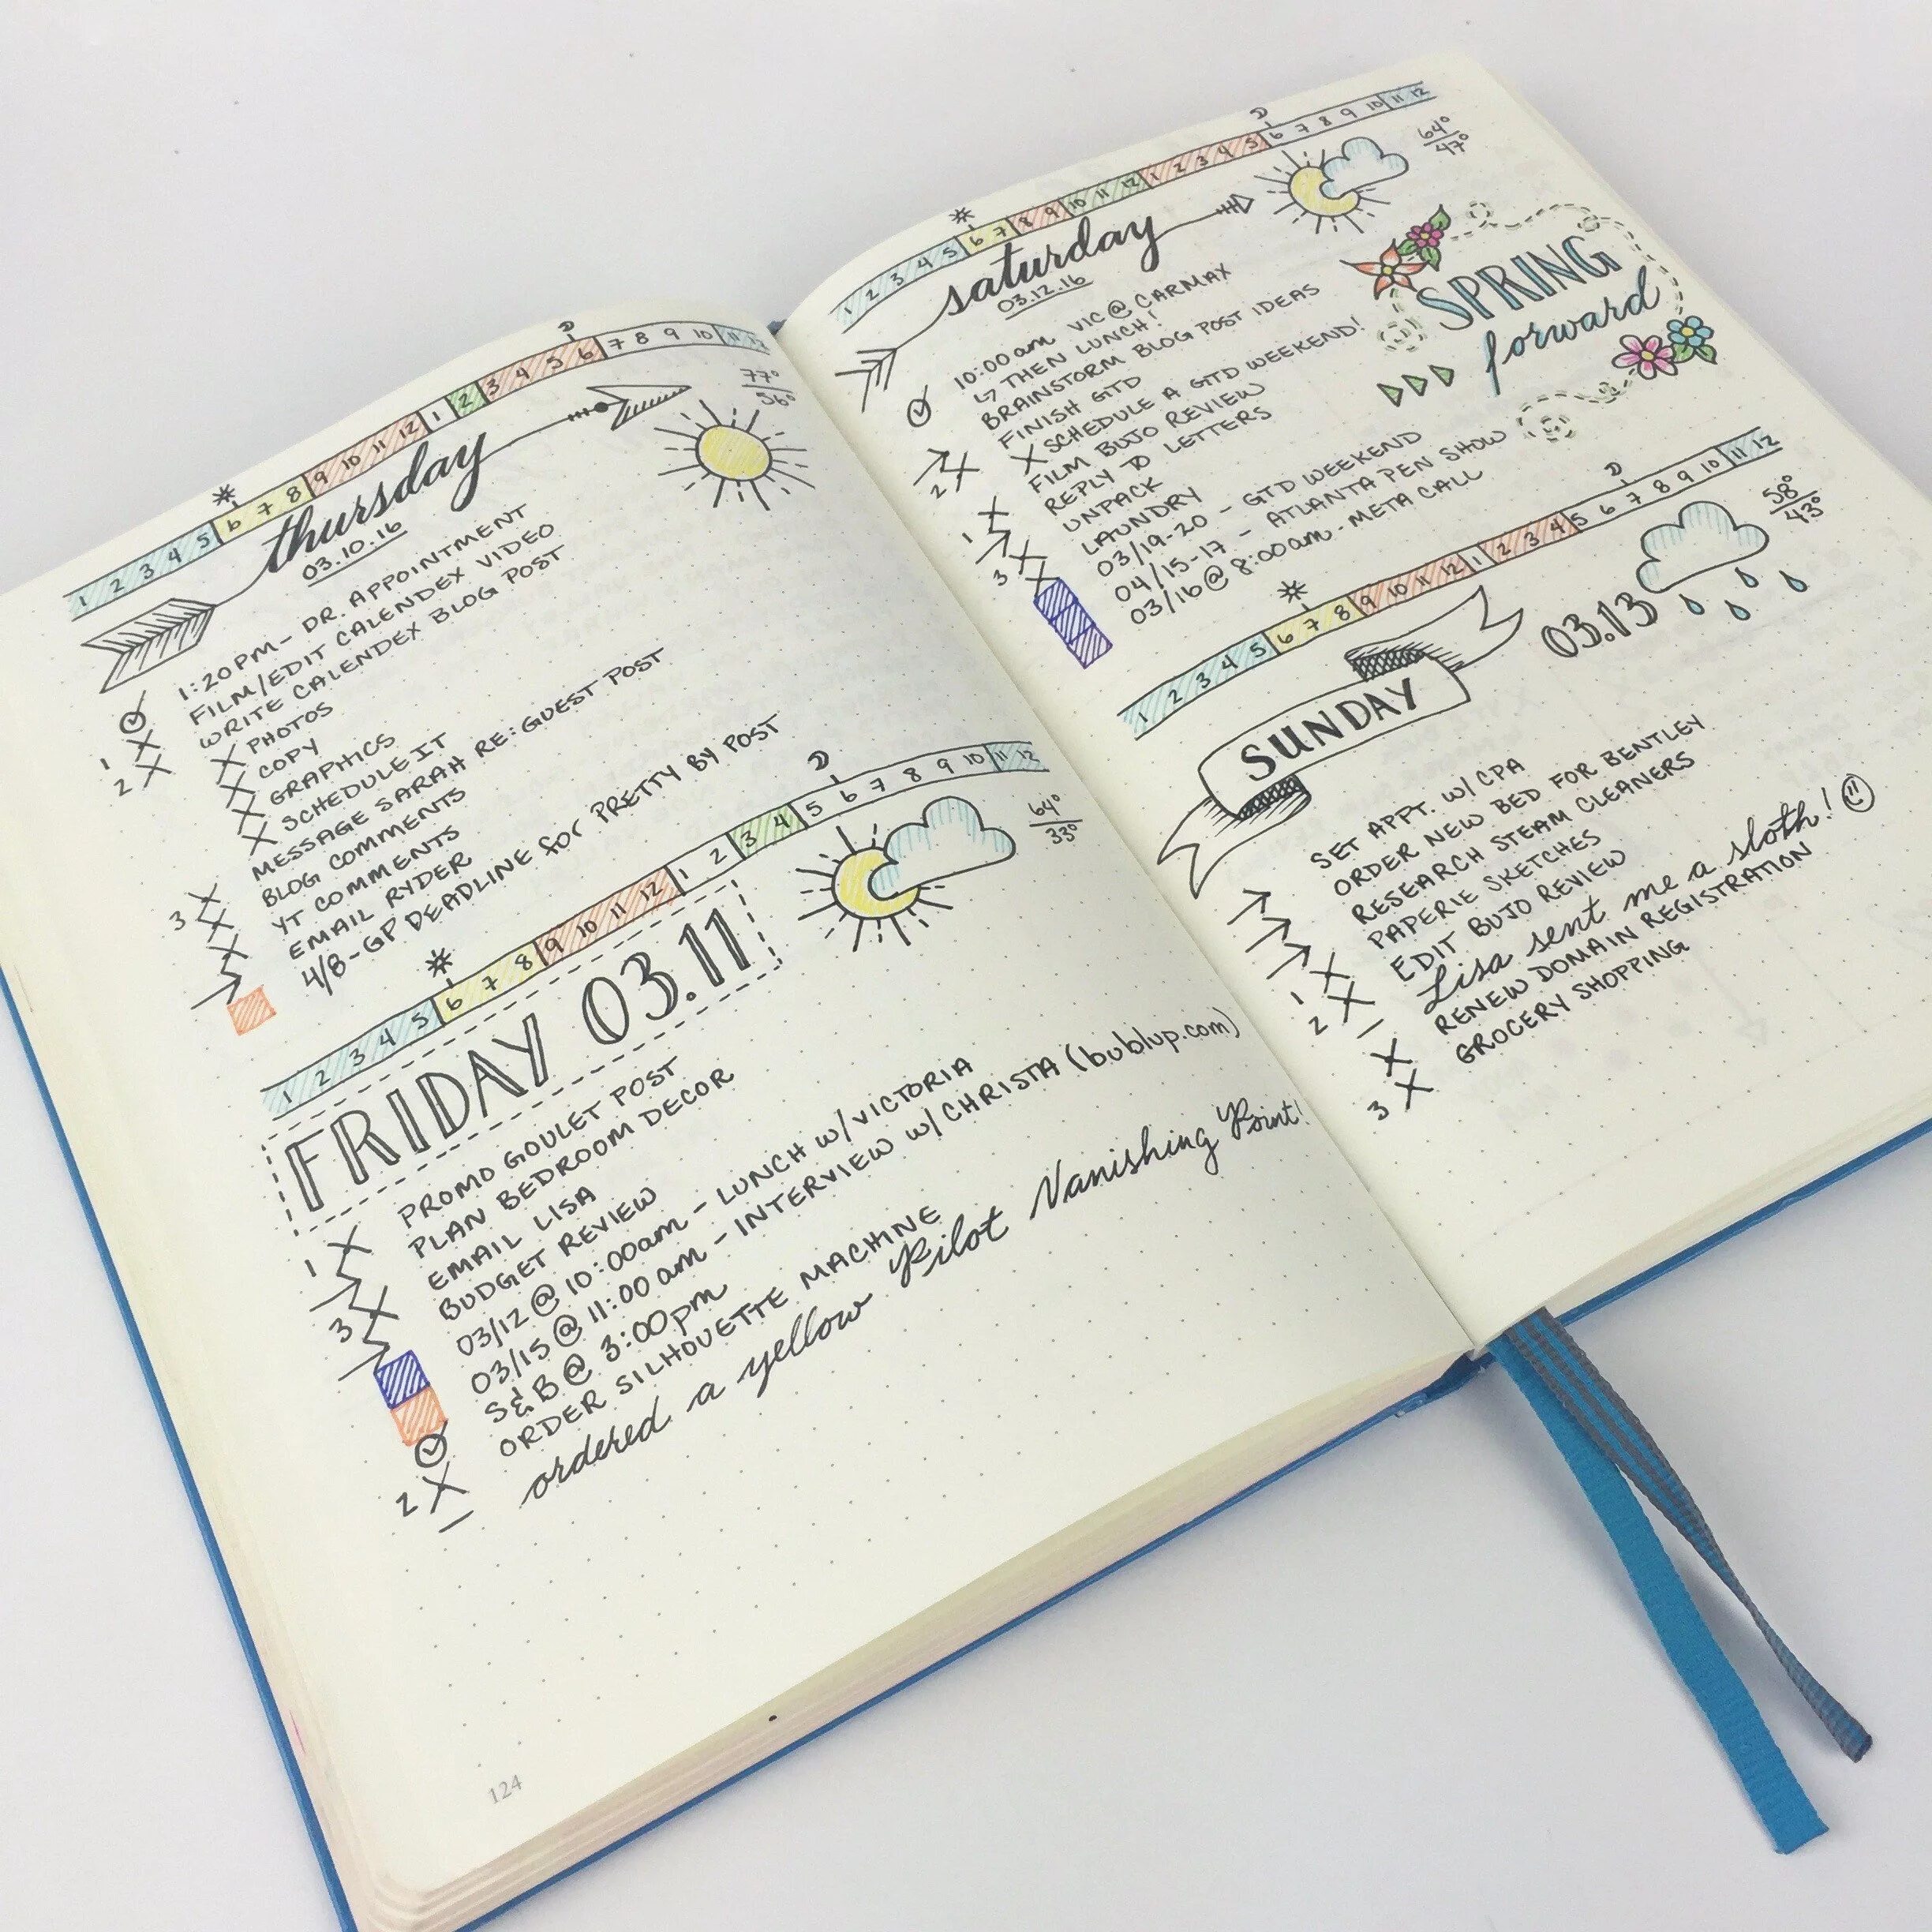 1 2 3 4 5 6 7 8 9 10 11 12 1 2 3 4 5 6 7 8 9 10 11 12
thursday
03.10.16
77°
56°
1:20PM - DR. APPOINTMENT
1 X FILM/EDIT CALENDEX VIDEO
2 X WRITE CALENDEX BLOG POST
X PHOTOS
X COPY
X GRAPHICS
X SCHEDULE IT
3 X MESSAGE SARAH RE: GUEST POST
X BLOG COMMENTS
X YT COMMENTS
EMAIL RYDER
4/8-GP DEADLINE for PRETTY BY POST
1 2 3 4 5 6 7 8 9 10 11 12 1 2 3 4 5 6 7 8 9 10 11 12
FRIDAY 03.11
64°
33°
1 X PROMO GOULET POST
PLAN BEDROOM DECOR
3 X EMAIL LISA
BUDGET REVIEW
03/12 @ 10:00am - LUNCH w/VICTORIA
03/15 @ 11:00 am - INTERVIEW w/CHRISTA (bublup.com)
S&B @ 3:00pm
2 X ORDER SILHOUETTE MACHINE
– ordered a yellow Pilot Vanishing Point!
124
1 2 3 4 5 6 7 8 9 10 11 12 1 2 3 4 5 6 7 8 9 10 11 12
saturday
03.12.16
64°
47°
SPRING
forward
10:00am VIC @ CARMAX
↳ THEN LUNCH!
BRAINSTORM BLOG POST IDEAS
2 X FINISH GTD
X SCHEDULE A GTD WEEKEND!
1 X FILM BUJO REVIEW
REPLY TO LETTERS
3 X UNPACK
X LAUNDRY
03/19-20 - GTD WEEKEND
04/15-17 - ATLANTA PEN SHOW
03/16 @ 8:00am - META CALL
1 2 3 4 5 6 7 8 9 10 11 12 1 2 3 4 5 6 7 8 9 10 11 12
SUNDAY
03.13
58°
43°
SET APPT. W/CPA
ORDER NEW BED FOR BENTLEY
RESEARCH STEAM CLEANERS
1 X PAPERIE SKETCHES
2 X EDIT BUJO REVIEW
– Lisa sent me a sloth!
X RENEW DOMAIN REGISTRATION
3 X GROCERY SHOPPING